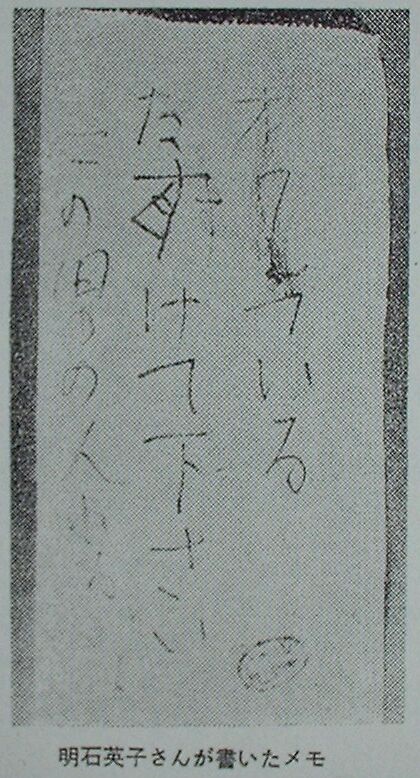 オワれている
たすけて下さい
この男の人
明石英子さんが書いたメモ